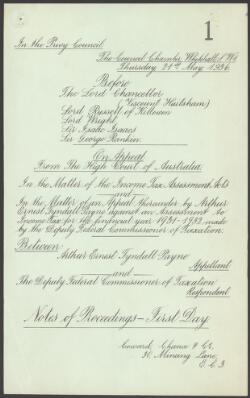 1
In the Privy Council.
The Council Chamber, Whitehall, S.W.1.
Thursday, 21st May, 1936.
Before
The Lord Chancellor
(Viscount Hailsham)
Lord Russell of Killowen
Lord Wright
Sir Isaac Isaacs
Sir George Rankin
On Appeal
From The High Court of Australia
In the Matter of the Income Tax Assessment Acts
and
In the Matter of an Appeal thereunder by Arthur
Ernest Tyndall Payne against an Assessment to
Income Tax for the financial year 1931-1932 made
by the Deputy Federal Commissioner of Taxation.
Between
Arthur Ernest Tyndall Payne
Appellant
and
The Deputy Federal Commissioner of Taxation
Respondent
Notes of Proceedings – First Day
Coward, Chance & Co.,
30, Mincing Lane,
E.C.3